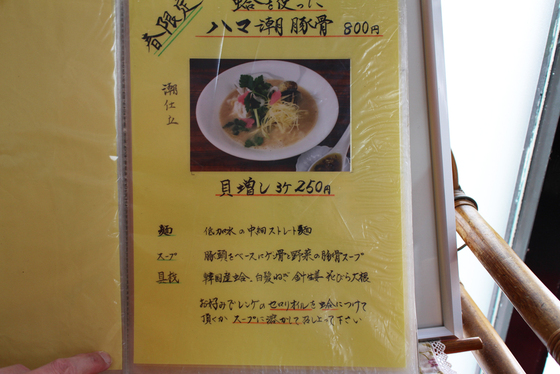 春限定
蛤を使った
ハマ潮豚骨 800円
潮仕立
貝増し 3ケ 250円
麺 低加水の中細ストレート麺
スープ 豚頭をベースにゲン骨と野菜の豚骨スープ
具材 韓国産蛤、白髪ねぎ 針生姜 花びら大根
お好みでレンゲのセロリオイルを蛤につけて
頂くか スープに溶かしてめし上って下さい